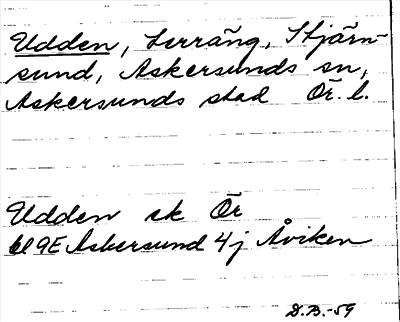 Udden, terräng, Stjärn-
sund, Askersunds sn,
Askersunds stad Ör. l.
Udden ek Ör
9E Askersund 4j Åviken
D.B.-59